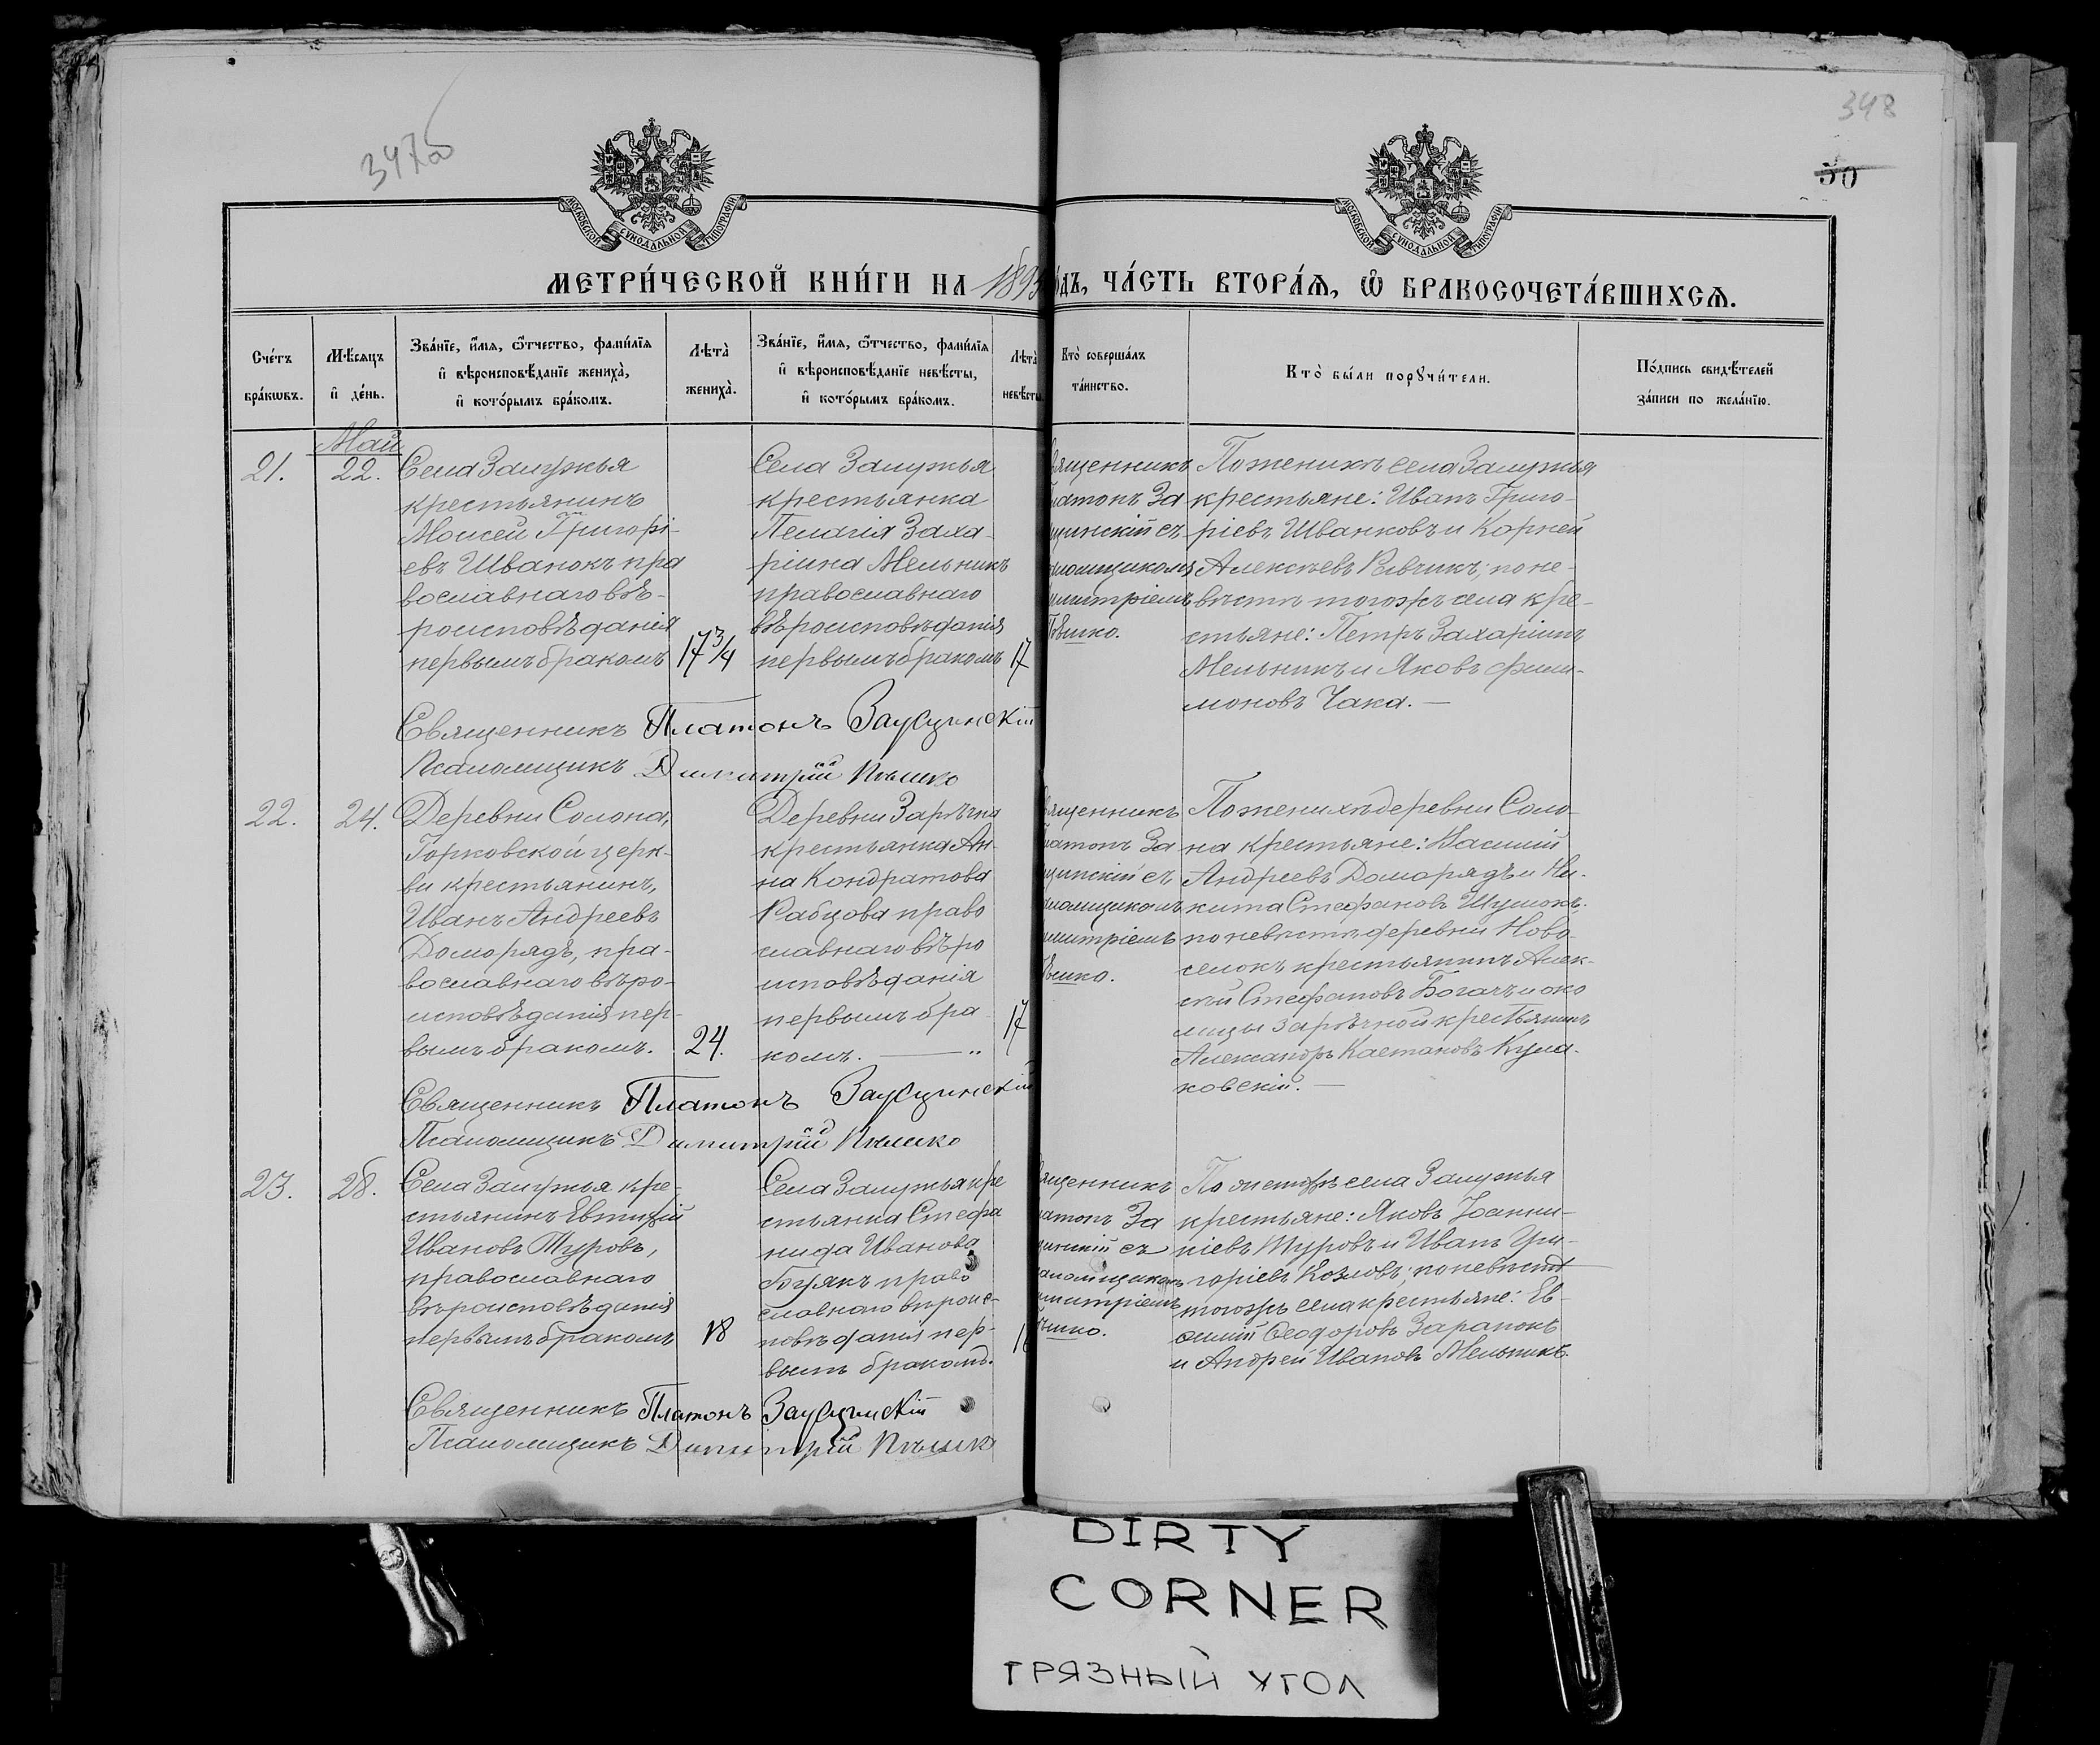 347об
348
50
МОСКОВСКОЙ СѴНОДАЛЬНОЙ ТИПОГРАФІИ
МОСКОВСКОЙ СѴНОДАЛЬНОЙ ТИПОГРАФІИ
МЕТРИ́ЧЕСКОЙ КНИ́ГИ НА 1893 го́дъ, ЧА́СТЬ ВТОРА́Ѧ, Ѽ БРАКОСОЧЕТА́ВШИХСѦ.
Сче́тъ бра́кѡвъ.
Мѣ́сѧцъ и҆ де́нь.
Зва́нїе, и҆́мѧ, ѻ҆́тчество, фами́лїѧ и҆ вѣроисповѣ́данїе жениха̀, и҆ кото́рымъ бра́комъ.
Лѣта̀ жениха̀.
Зва́нїе, и҆́мѧ, ѻ҆́тчество, фами́лїѧ и҆ вѣроисповѣ́данїе невѣ́сты, и҆ кото́рымъ бра́комъ.
Лѣта̀ невѣ́сты.
Кто̀ соверша́лъ та́инство.
Кто̀ бы́ли порꙋчи́тели.
По́дпись свидѣ́телей за́писи по жела́нїю.
Май
21.
22.
Села Залужья
крестьянинъ
Моисей Григорі-
евъ Шванокъ пра
вославнаго вѣ-
роисповѣданія
первымъ бракомъ
17 3/4
Села Залужья
крестьянка
Пелагія Заха-
ріина Мельникъ
православнаго
вѣроисповѣданія
первымъ бракомъ
17
вященникъ
латонъ За
щинскій съ
аломщикомъ
имитріемъ
Пѣшко.
По женихѣ села Залужья
крестьяне: Иванъ Григо-
ріевъ Шванковъ и Корней
Алексѣевъ Ревчикъ; по не-
вѣстѣ тогожъ села кре-
стьяне: Петръ Захаріинъ
Мельникъ и Яковъ Фили-
моновъ Чака. —
Священникъ Платонъ Заусцинскій
Псаломщикъ Димитрій Пѣшко
22.
24.
Деревни Солона,
Горковской церк-
ви крестьянинъ,
Иванъ Андреевъ
Доморядъ, пра-
вославнаго вѣро-
исповѣданія пер-
вымъ бракомъ.
24.
Деревни Зарѣчна
крестьянка Ан-
на Кондратова
Рабцова право
славнаго вѣро
исповѣданія
первымъ бра-
комъ. — "
17
вященникъ
латонъ За
щинскій съ
аломщикомъ
имитріемъ
ѣшко.
По женихѣ деревни Соло-
на крестьяне: Василій
Андреевъ Доморядъ и Ни-
кита Стефановъ Шумокъ;
по невѣстѣ деревни Ново-
селокъ крестьянинъ Алек-
сѣй Стефановъ Богачъ и око
лицы Зарѣчной крестьянинъ
Александръ Каетановъ Кула-
ковскій. —
Священникъ Платонъ Заусцинскій
Псаломщикъ Димитрій Пѣшко
23.
28.
Села Залужья кре-
стьянинъ Евтихій
Ивановъ Туровъ,
православнаго
вѣроисповѣданія
первымъ бракомъ
18
Села Залужья кре
стьянка Стефа
нида Иванова
Бурякъ право
славнаго вѣроис-
повѣданія пер-
вымъ бракомъ.
вященникъ
атонъ За
щинскій съ
аломщикомъ
имитріемъ
ѣшко.
По женихѣ села Залужья
крестьяне: Яковъ Іоанни-
кіевъ Туровъ и Иванъ Гри-
горіевъ Козловъ; по невѣстѣ
тогожъ села крестьяне: Ев-
Ѳеодоровъ
и Андрей Ивановъ Мельникъ.
Священникъ Платонъ Заусцинскій
Псаломщикъ Димитрій Пѣшко
DIRTY
CORNER
ГРЯЗНЫЙ УГОЛ